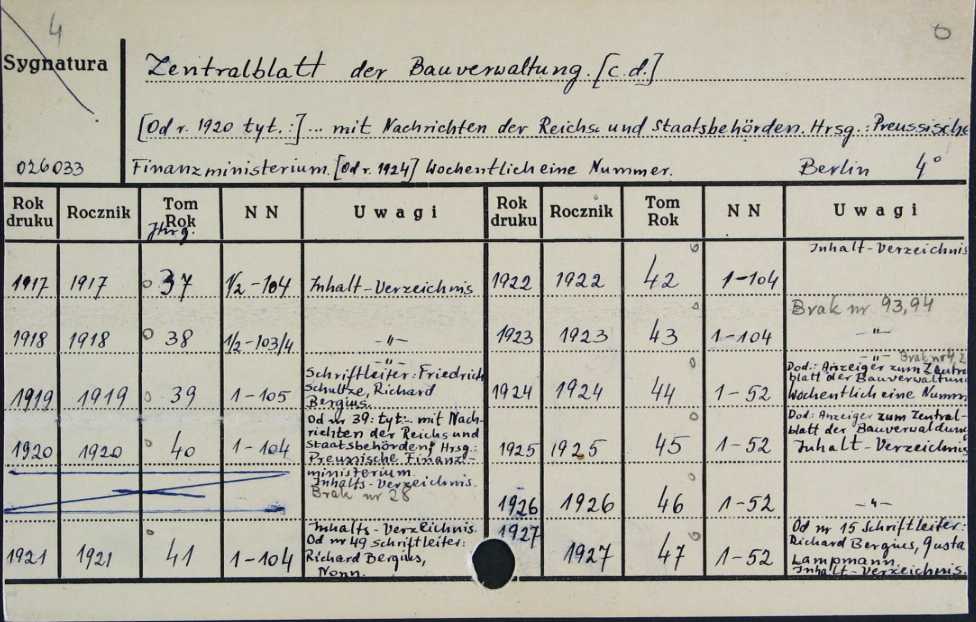 4
6
Sygnatura
Zentralblatt der Bauverwaltung. [c.d.]
[Od r. 1920 tyt.:] ... mit Nachrichten der Reichs und Staatsbehörden. Hrsg.: Preussische
026033
Finanzministerium. [Od r. 1924] Wochentlich eine Nummer. Berlin 4°
Rok druku Rocznik Tom Rok Jhrg. NN Uwagi Rok druku Rocznik Tom Rok NN Uwagi
1917 1917 37 1/2-104 Inhalt-Verzeichnis
1918 1918 38 1/2-103/4 -"-
1919 1919 39 1-105 -"-
Schriftleiter: Friedrich
Schultze, Richard
Bergius.
1920 1920 40 1-104 Od nr 39: tyt: mit Nach-
richten der Reichs und
Staatsbehörden. Hrsg:
Preuznische Finanz-
ministerium.
Inhalts-Verzeichnis.
Brak nr 28
1921 1921 41 1-104 Inhalts-Verzeichnis.
Od nr 49 Schriftleiter:
Richard Bergius,
Nonn.
1922 1922 42 1-104 Inhalt-Verzeichnis
1923 1923 43 1-104 Brak nr 93,94
-"-
1924 1924 44 1-52 -"- Brak nr 4,2
Dod.: Anzeiger zum Zentra
blatt der Bauverwaltung
Wochentlich eine Numm
1925 1925 45 1-52 Dod.: Anzeiger zum Zentral-
blatt der Bauverwaldung
Inhalt-Verzeichnis
1926 1926 46 1-52 -"-
1927 1927 47 1-52 Od nr 15 Schriftleiter:
Richard Bergius, Gusta
Lampmann.
Inhalt-Verzeichnis.